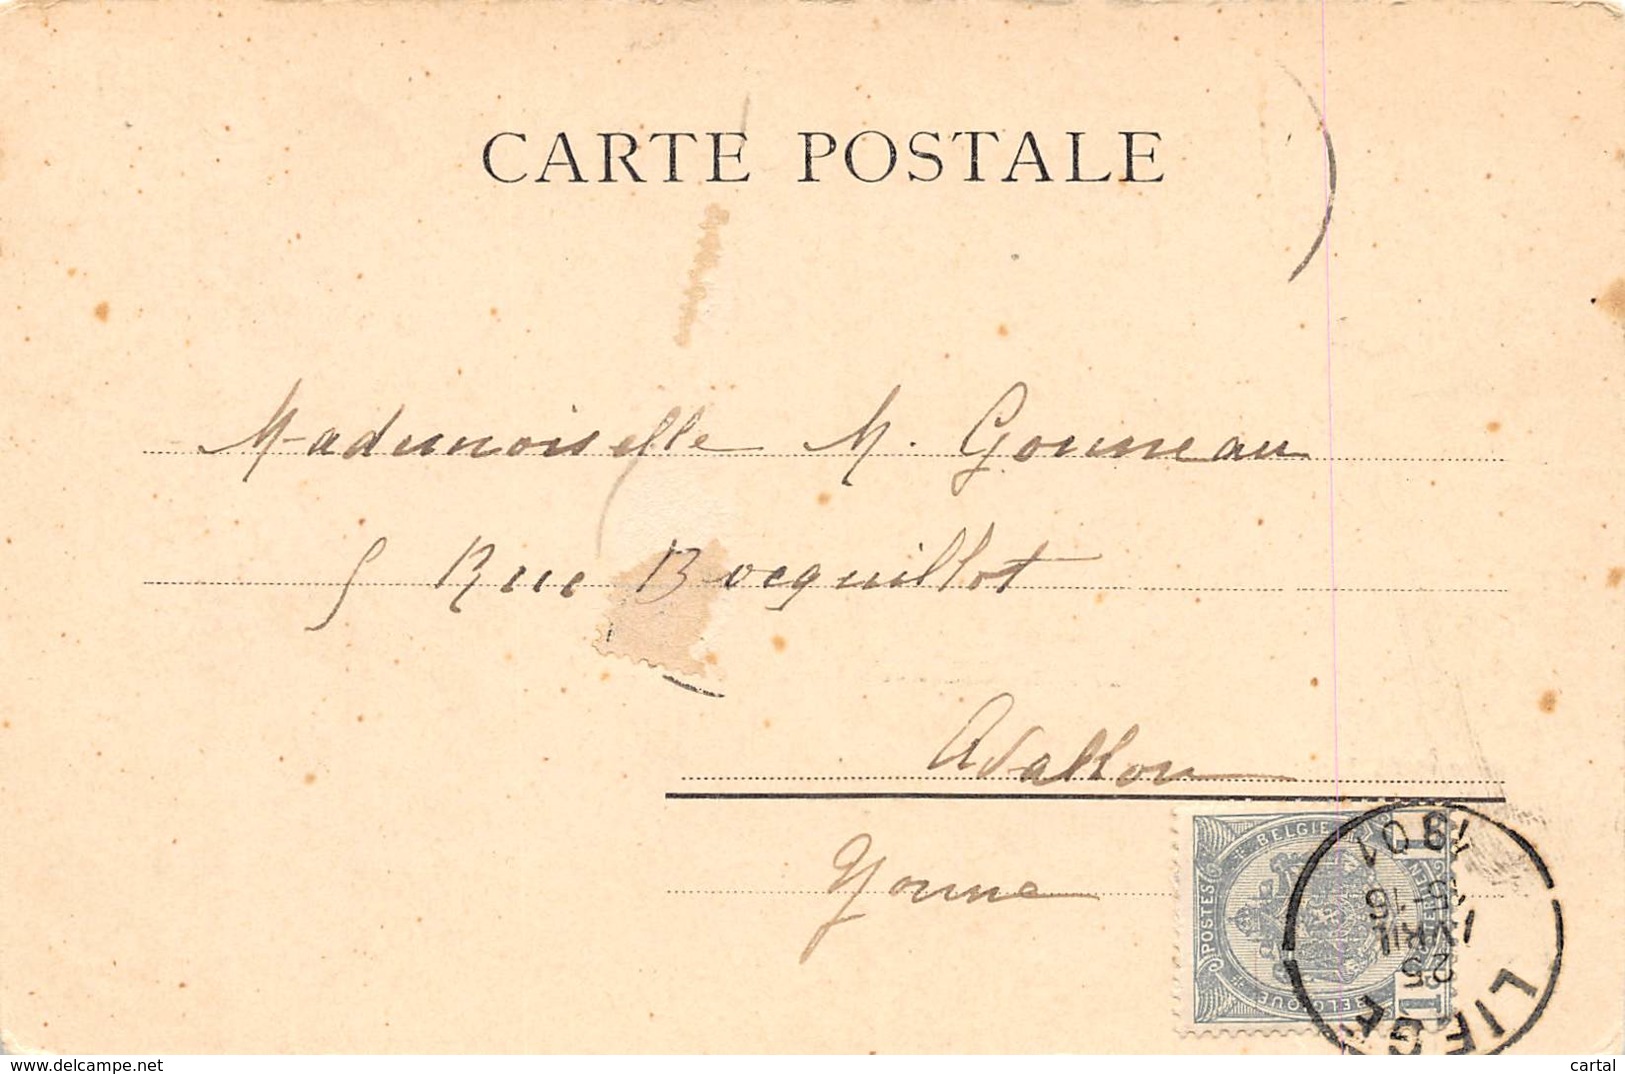 CARTE POSTALE
Mademoiselle M. Gouneau
5 Rue Bocquillot
Avallon
Yonne
BELGIE
POSTES
BELGIQUE
1
1
LIEGE
25
AVRIL
15-16
1901
www.delcampe.net
cartal